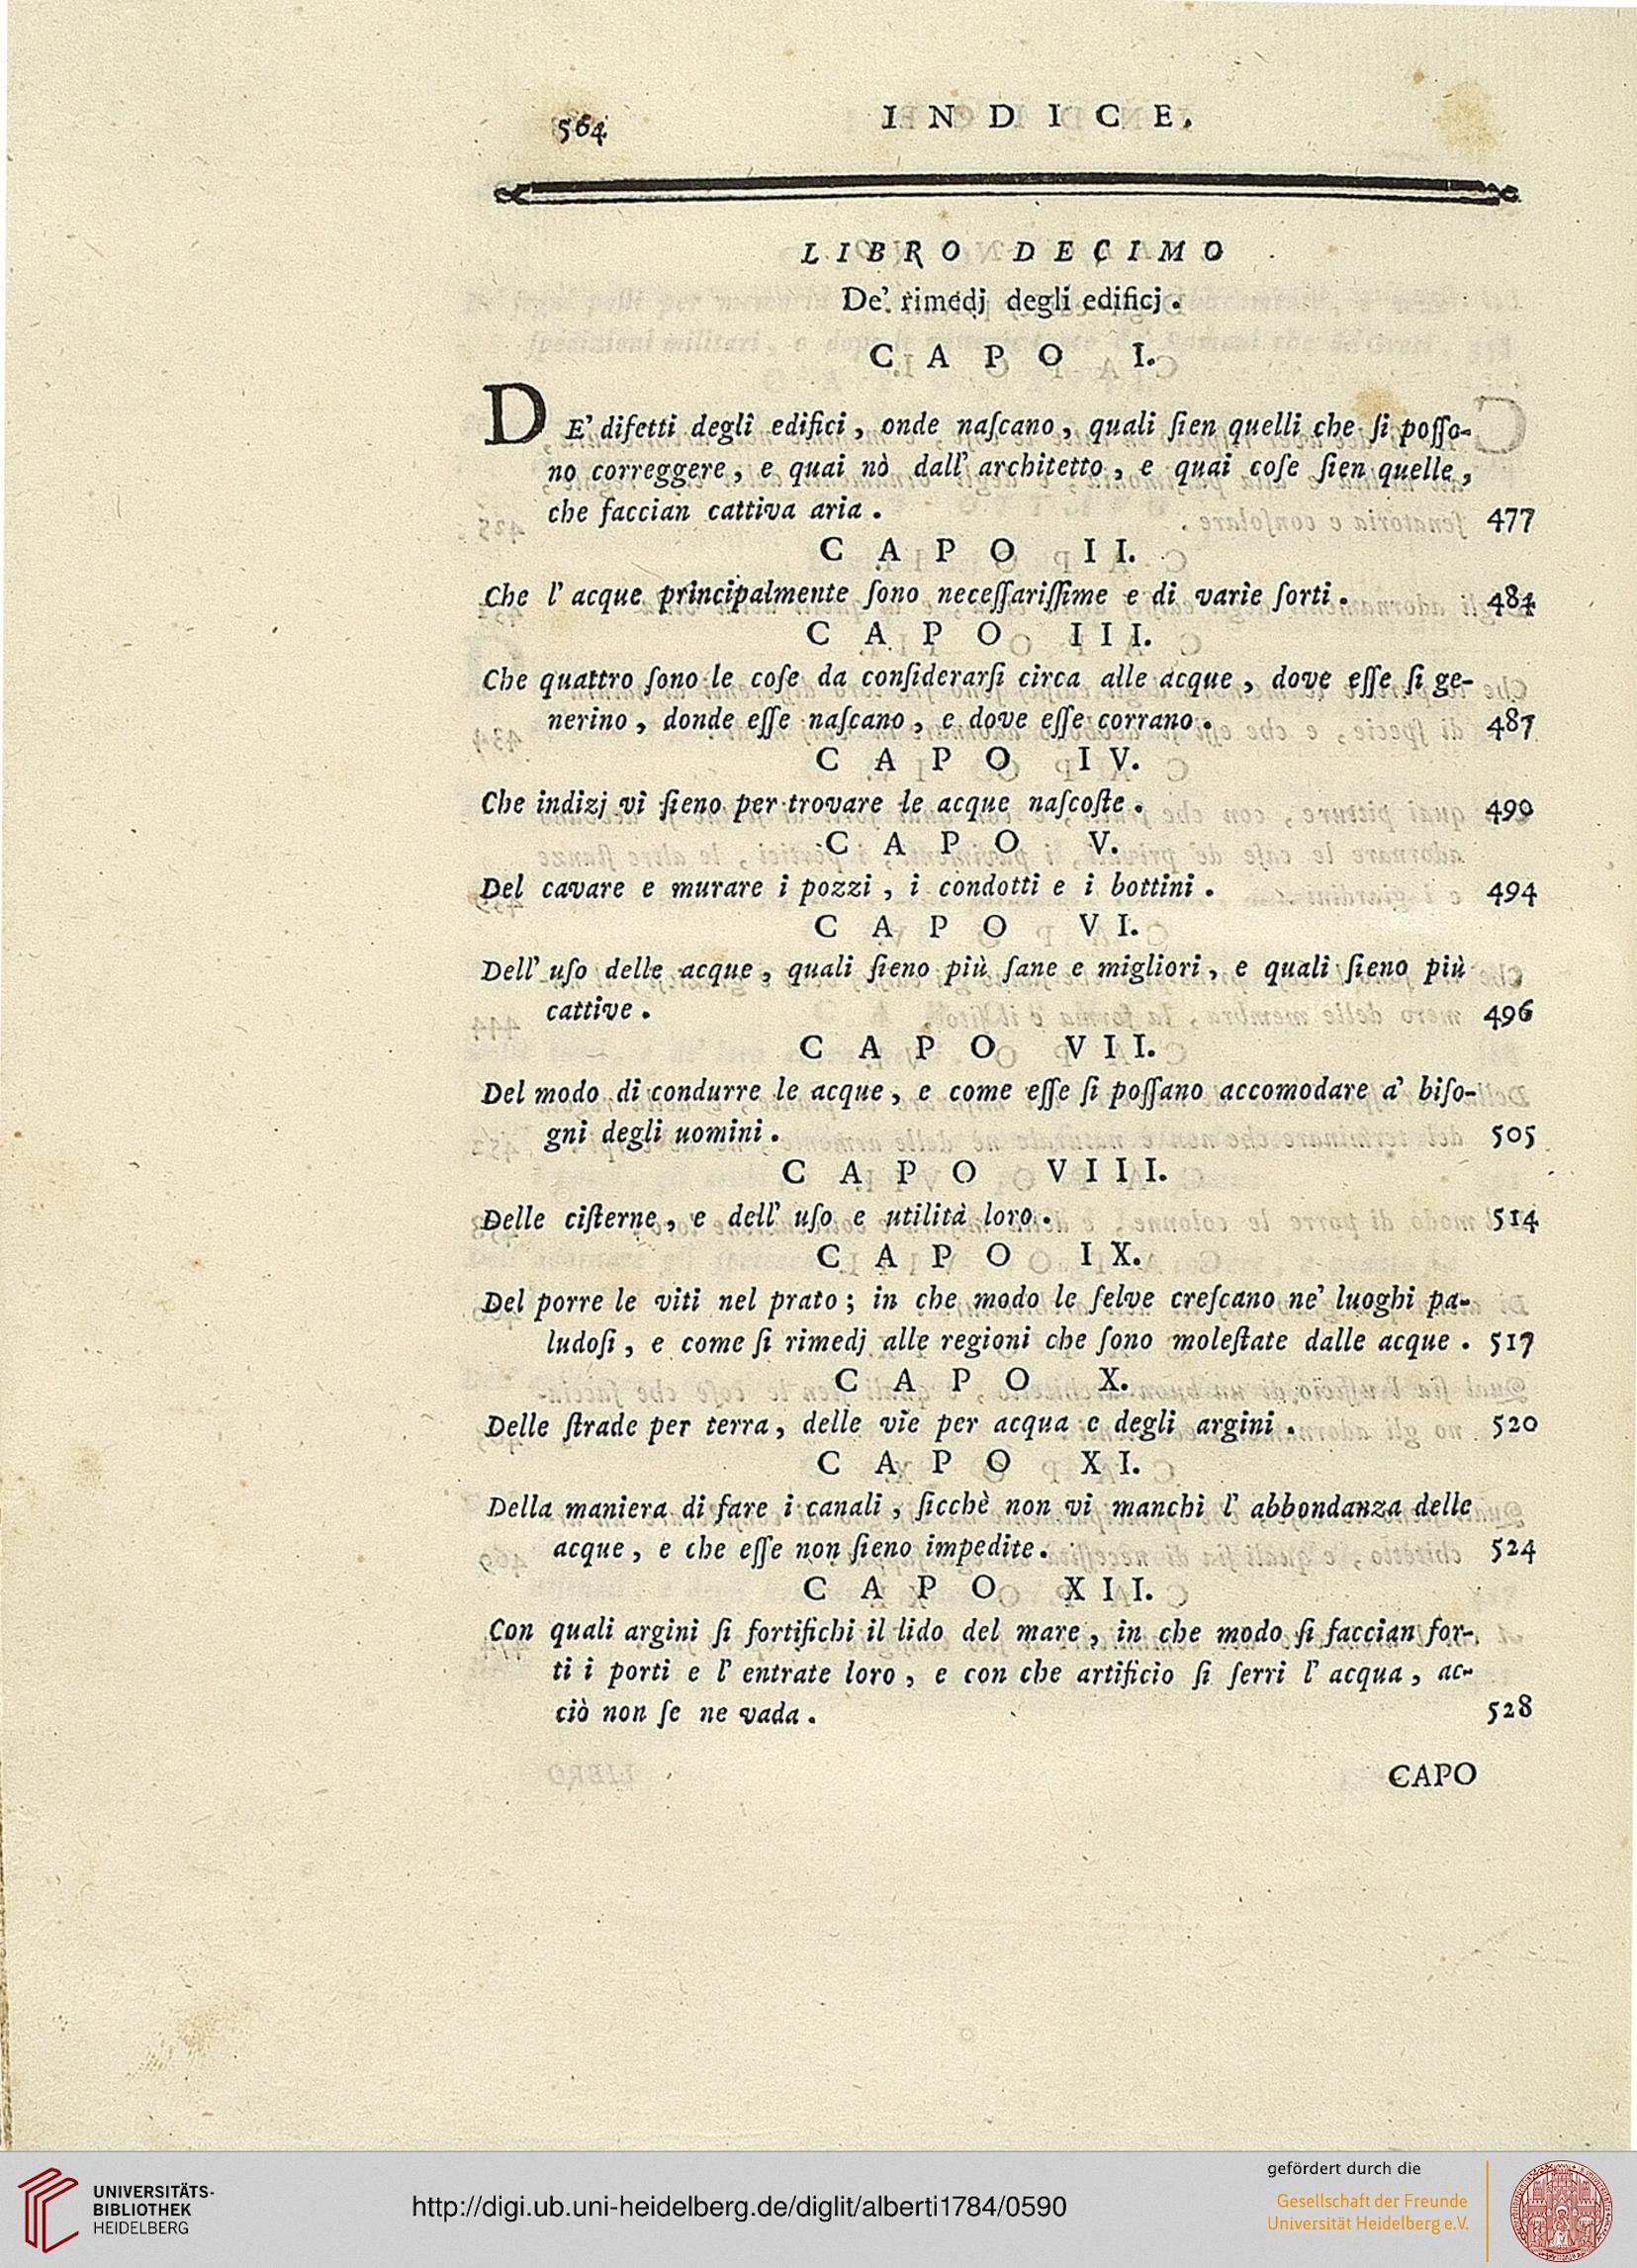 564
INDICE.
LIBRO DECIMO
De' rimedj degli edificj.
CAPO I.
DE' difetti degli edifici, onde naſcano, quali ſien quelli che ſi poſſo-
no correggere, e quai nò dall' architetto, e quai coſe ſien quelle,
che faccian cattiva aria. 477
CAPO II.
Che l' acque principalmente ſono neceſſariſſime e di varie ſorti. 484
CAPO III.
Che quattro ſono le coſe da conſiderarſi circa alle acque, dove eſſe ſi ge-
nerino, donde eſſe naſcano, e dove eſſe corrano. 487
CAPO IV.
Che indizj vi ſieno per trovare le acque naſcoſte. 490
CAPO V.
Del cavare e murare i pozzi, i condotti e i bottini. 494
CAPO VI.
Dell' uſo delle acque, quali ſieno più ſane e migliori, e quali ſieno più
cattive. 496
CAPO VII.
Del modo di condurre le acque, e come eſſe ſi poſſano accomodare a' biſo-
gni degli uomini. 505
CAPO VIII.
Delle ciſterne, e dell' uſo e utilità loro. 514
CAPO IX.
Del porre le viti nel prato; in che modo le ſelve creſcano ne' luoghi pa-
ludoſi, e come ſi rimedj alle regioni che ſono moleſtate dalle acque. 517
CAPO X.
Delle ſtrade per terra, delle vie per acqua e degli argini. 520
CAPO XI.
Della maniera di fare i canali, ſicchè non vi manchi l' abbondanza delle
acque, e che eſſe non ſieno impedite. 524
CAPO XII.
Con quali argini ſi fortifichi il lido del mare, in che modo ſi faccian for-
ti i porti e l' entrate loro, e con che artificio ſi ſerri l' acqua, ac-
ciò non ſe ne vada. 528
CAPO
UNIVERSITÄTS-
BIBLIOTHEK
HEIDELBERG
http://digi.ub.uni-heidelberg.de/diglit/alberti1784/0590
gefördert durch die
Gesellschaft der Freunde
Universität Heidelberg e.V.